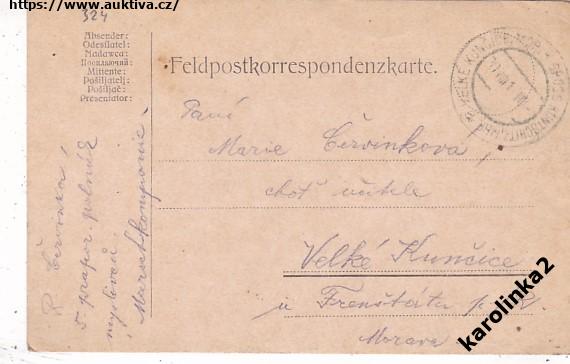 https://www.auktiva.cz/
324
Absender:
Odesílatel:
Nadawca:
Посилаючий:
Mittente:
Pošiljatelj:
Pošiljač:
Presentator:
Feldpostkorrespondenzkarte.
Paní
Marie Červinková,
choť učitele
Velké Kunčice
u Frenštátu p. R.
Morava
R. Červinka,
5 prapor. polních
myslivců
Marschkompanie.
VELKÉ KUNČICE
karolinka2